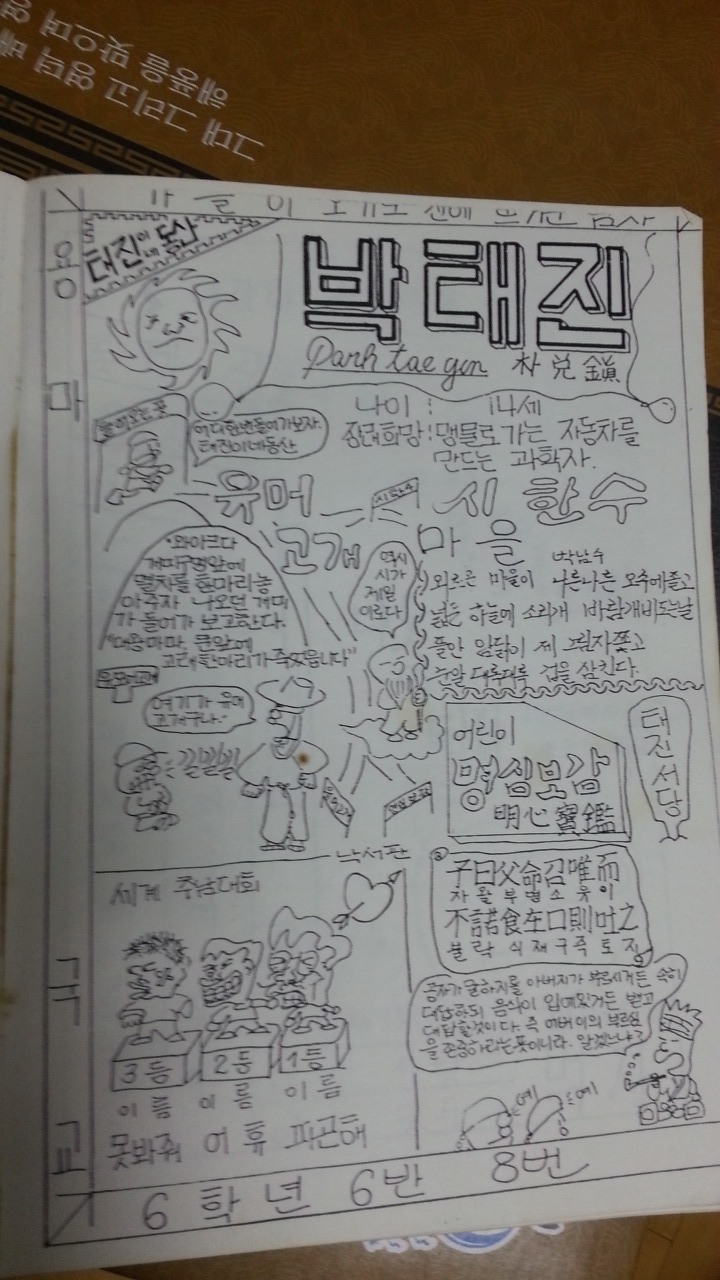 그대 그리고 영덕 배
해풍을 맞으며 영
용
마
국
교
태진이네 동산
박태진
Park tae gin 朴兌鎭
나이 : 14세
장래희망 : 맹물로 가는 자동차를
만드는 과학자.
들어오는 곳
어디한번들어가보자.
태진이네동산
유머
고개
"와아크다
개미구멍앞에
멸치를 한마리놓
아주자 나오던 개미
가 들어가 보고한다.
"대왕마마 문앞에
고래한마리가 죽었읍니다"
유모어고개
여기가 유머
고개구나.
낄낄낄
역시
시가
제일
이로다
시 한수
마을
박남수
외로운 마을이 나른나른 오수에졸고
넓은 하늘에 소리개 바람개비도는날
뜰안 암탉이 제 그림자쫓고
눈알 대록대록 겁을 삼킨다.
어린이
명심보감
明心寶鑑
태진서당
子曰父命召唯而
자왈부명소유이
不諾食在口則吐之
불락식재구즉토지
공자가 말하기를 아버지가 부르시거든 속히
대답하되 음식이 입에있거든 뱉고
대답할것이다. 즉 어버이의 부르심
을 존중하라는뜻이니라. 알겠느냐?
예
예
낙서판
세계 추남대회
3등
2등
1등
이름
이름
이름
못봐줘
어휴
피곤해
6학년 6반 8번